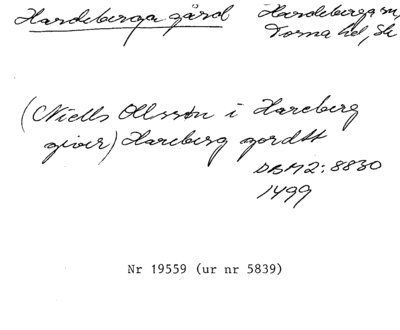 Hardeberga gård Hardeberga sn,
Torna hd, Sk
(Niells Ollssøn i Hareberg
giver) Hareberg gordtt
DBM2:8830
1499
Nr 19559 (ur nr 5839)